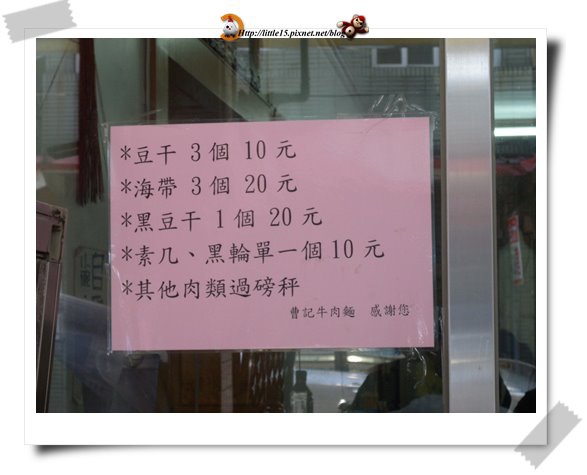 Http://little15.pixnet.net/blog
*豆干 3個 10元
*海帶 3個 20元
*黑豆干 1個 20元
*素几、黑輪單一個10元
*其他肉類過磅秤
曹記牛肉麵 感謝您